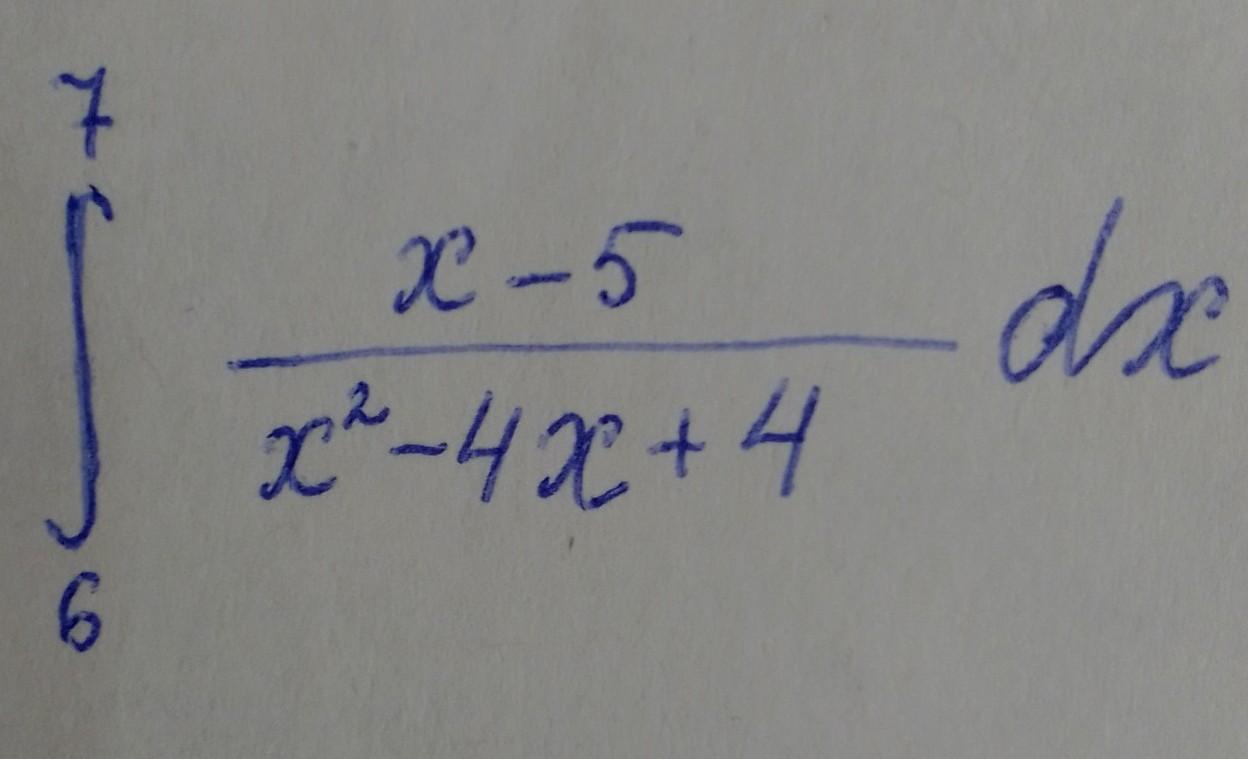 7
∫
x - 5
x² - 4x + 4
dx
6